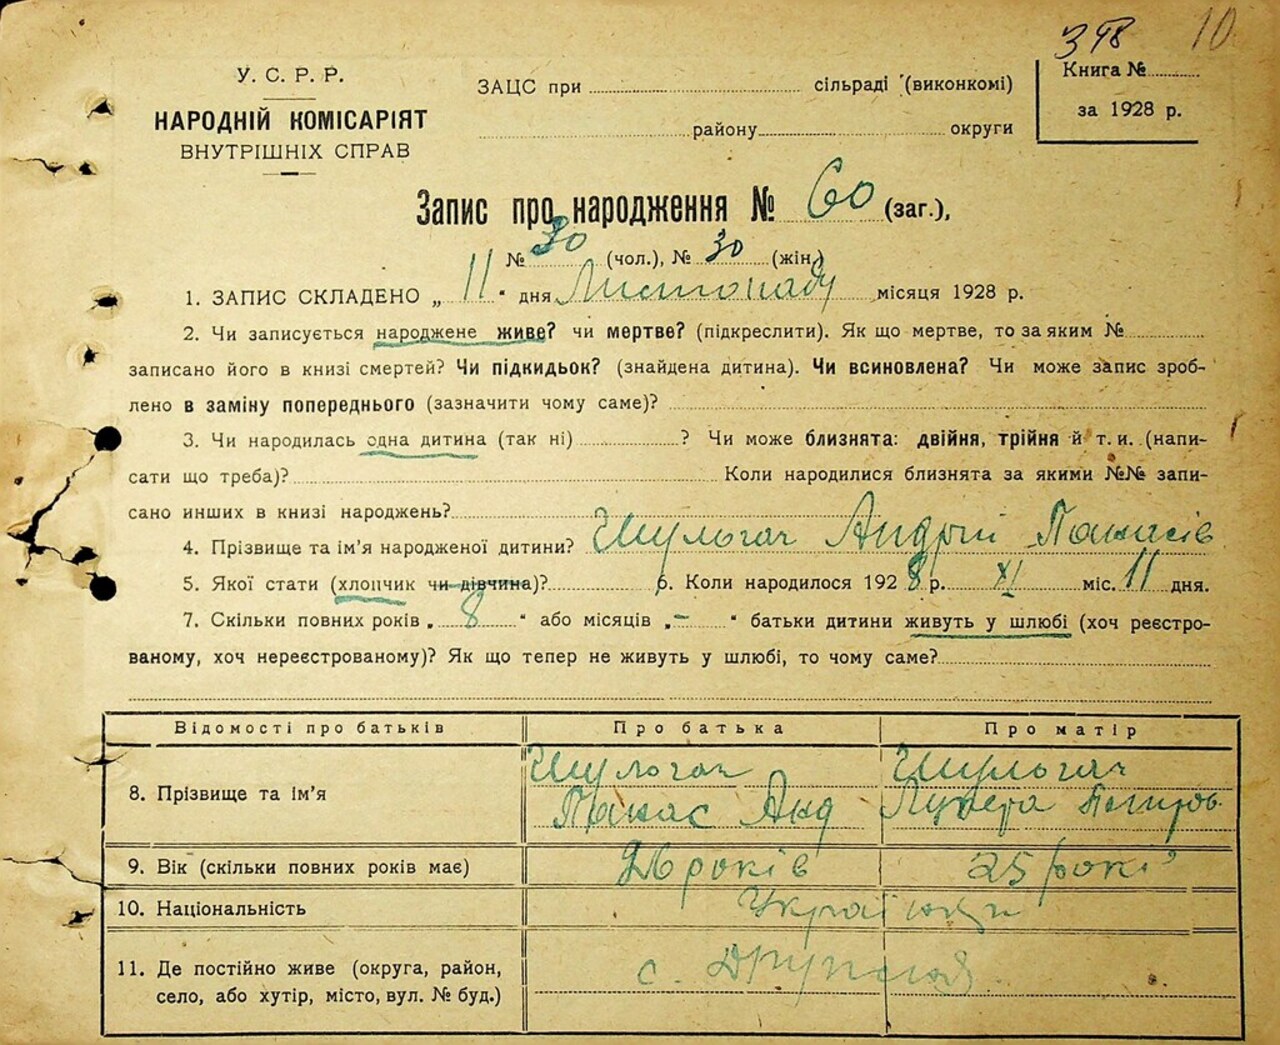 398 10
У. С. Р. Р.
НАРОДНІЙ КОМІСАРІЯТ
ВНУТРІШНІХ СПРАВ
ЗАЦС при сільраді (виконкомі)
району округи
Книга №
за 1928 р.
Запис про народження № 60 (заг.),
№ 30 (чол.), № 30 (жін.)
1. ЗАПИС СКЛАДЕНО „ 11 “ дня Листопаду місяця 1928 р.
2. Чи записується народжене живе? чи мертве? (підкреслити). Як що мертве, то за яким №
записано його в книзі смертей? Чи підкидьок? (знайдена дитина). Чи всиновлена? Чи може запис зроб-
лено в заміну попереднього (зазначити чому саме)?
3. Чи народилась одна дитина (так ні) ? Чи може близнята: двійня, трійня й т. и. (напи-
сати що треба)? Коли народилися близнята за якими №№ запи-
сано инших в книзі народжень?
4. Прізвище та ім'я народженої дитини? Шульгач Андрій Панасів
5. Якої стати (хлопчик чи дівчина)? 6. Коли народилося 1928 р. XI міс. 11 дня.
7. Скільки повних років „ 8 “ або місяців „ - “ батьки дитини живуть у шлюбі (хоч реєстро-
ваному, хоч нереєстрованому)? Як що тепер не живуть у шлюбі, то чому саме?
Відомості про батьків Про батька Про матір
8. Прізвище та ім'я Шульгач Шульгач
Панас Анд
9. Вік (скільки повних років має) 26 років 25 років
10. Національність Українці
11. Де постійно живе (округа, район,
село, або хутір, місто, вул. № буд.) с.